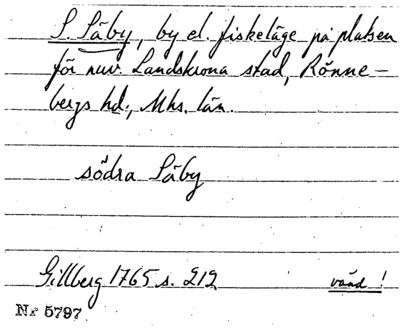 S. Säby, by el. fiskeläge på platsen
för nuv. Landskrona stad, Rönne-
bergs hd., Mhs. län.
södra Säby
Gillberg 1765 s. 212
vänd!
Nr 5797